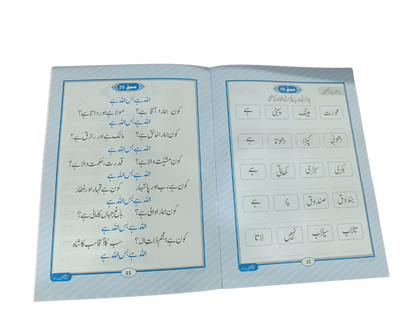 سبق 19
عورت عینک پہنی ہے
دھوبی کپڑا دھوتا ہے
بکری سبزی کھاتی ہے
بندوق صندوق پر ہے
تالاب سیلاب نہیں لاتا
22
سبق 20
اللہ ہے بس اللہ ہے
کون ہمارا آقا ہے؟ مولا ہے اور داتا ہے؟
اللہ ہے بس اللہ ہے
کون ہمارا خالق ہے؟ مالک ہے اور رازق ہے؟
اللہ ہے بس اللہ ہے
کون مشیّت والا ہے؟ قدرت، حکمت والا ہے؟
اللہ ہے بس اللہ ہے
کون ہے رب اور پالنہار کون ہے قہار اور غفار
اللہ ہے بس اللہ ہے
کون ہمارا والی ہے؟ باغ جہاں کا مالی ہے؟
اللہ ہے بس اللہ ہے
کون ہے انجم ذات الٰہ؟ سب کا آقا سب کا شاہ
اللہ ہے بس اللہ ہے
23